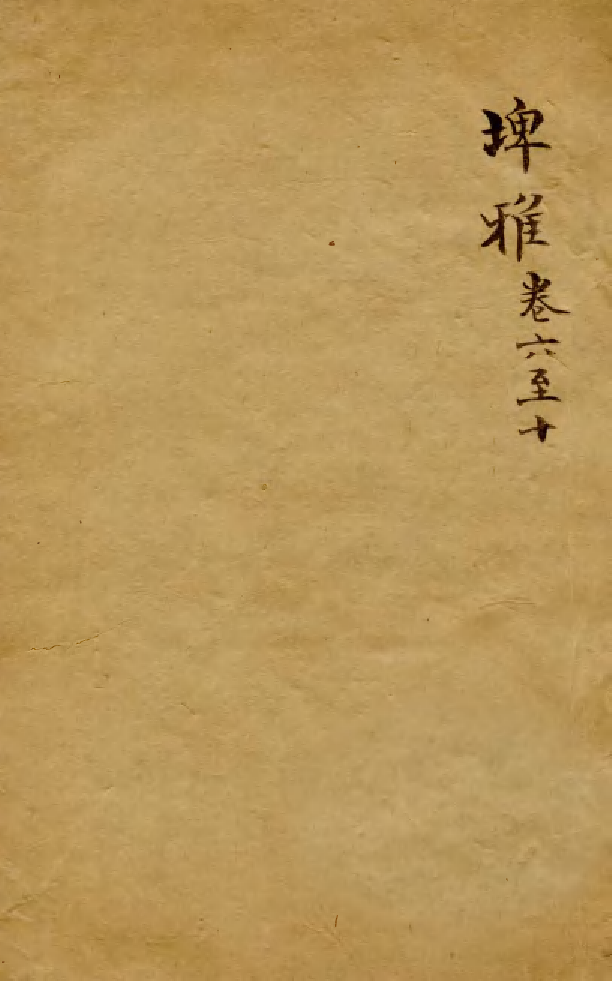 埤雅卷六至十